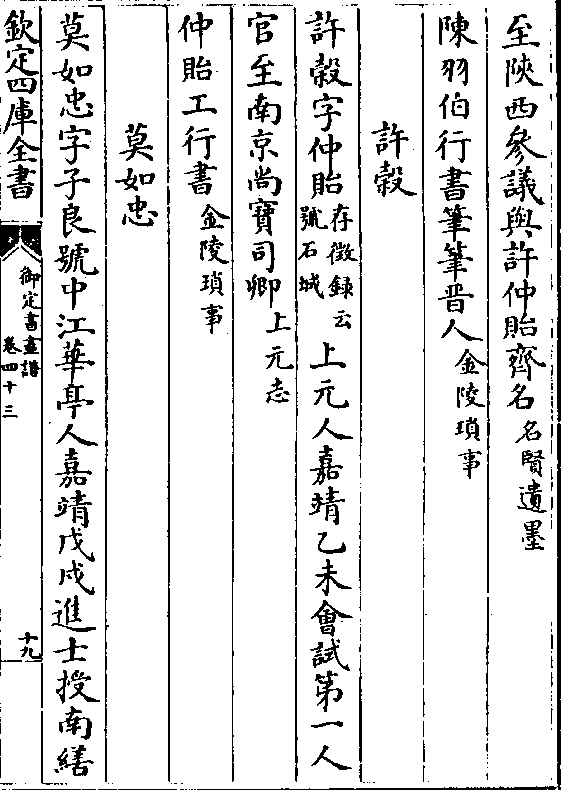 至陝西參議與許仲貽齊名名賢遺墨
陳羽伯行書筆筆晋人金陵瑣事
許穀
許穀字仲貽存徵錄云號石城上元人嘉靖乙未會試第一人
官至南京尚寶司卿上元志
仲貽工行書金陵瑣事
莫如忠
莫如忠字子良號中江華亭人嘉靖戊戌進士授南繕
欽定四庫全書
御定書畫譜
卷四十三
十九